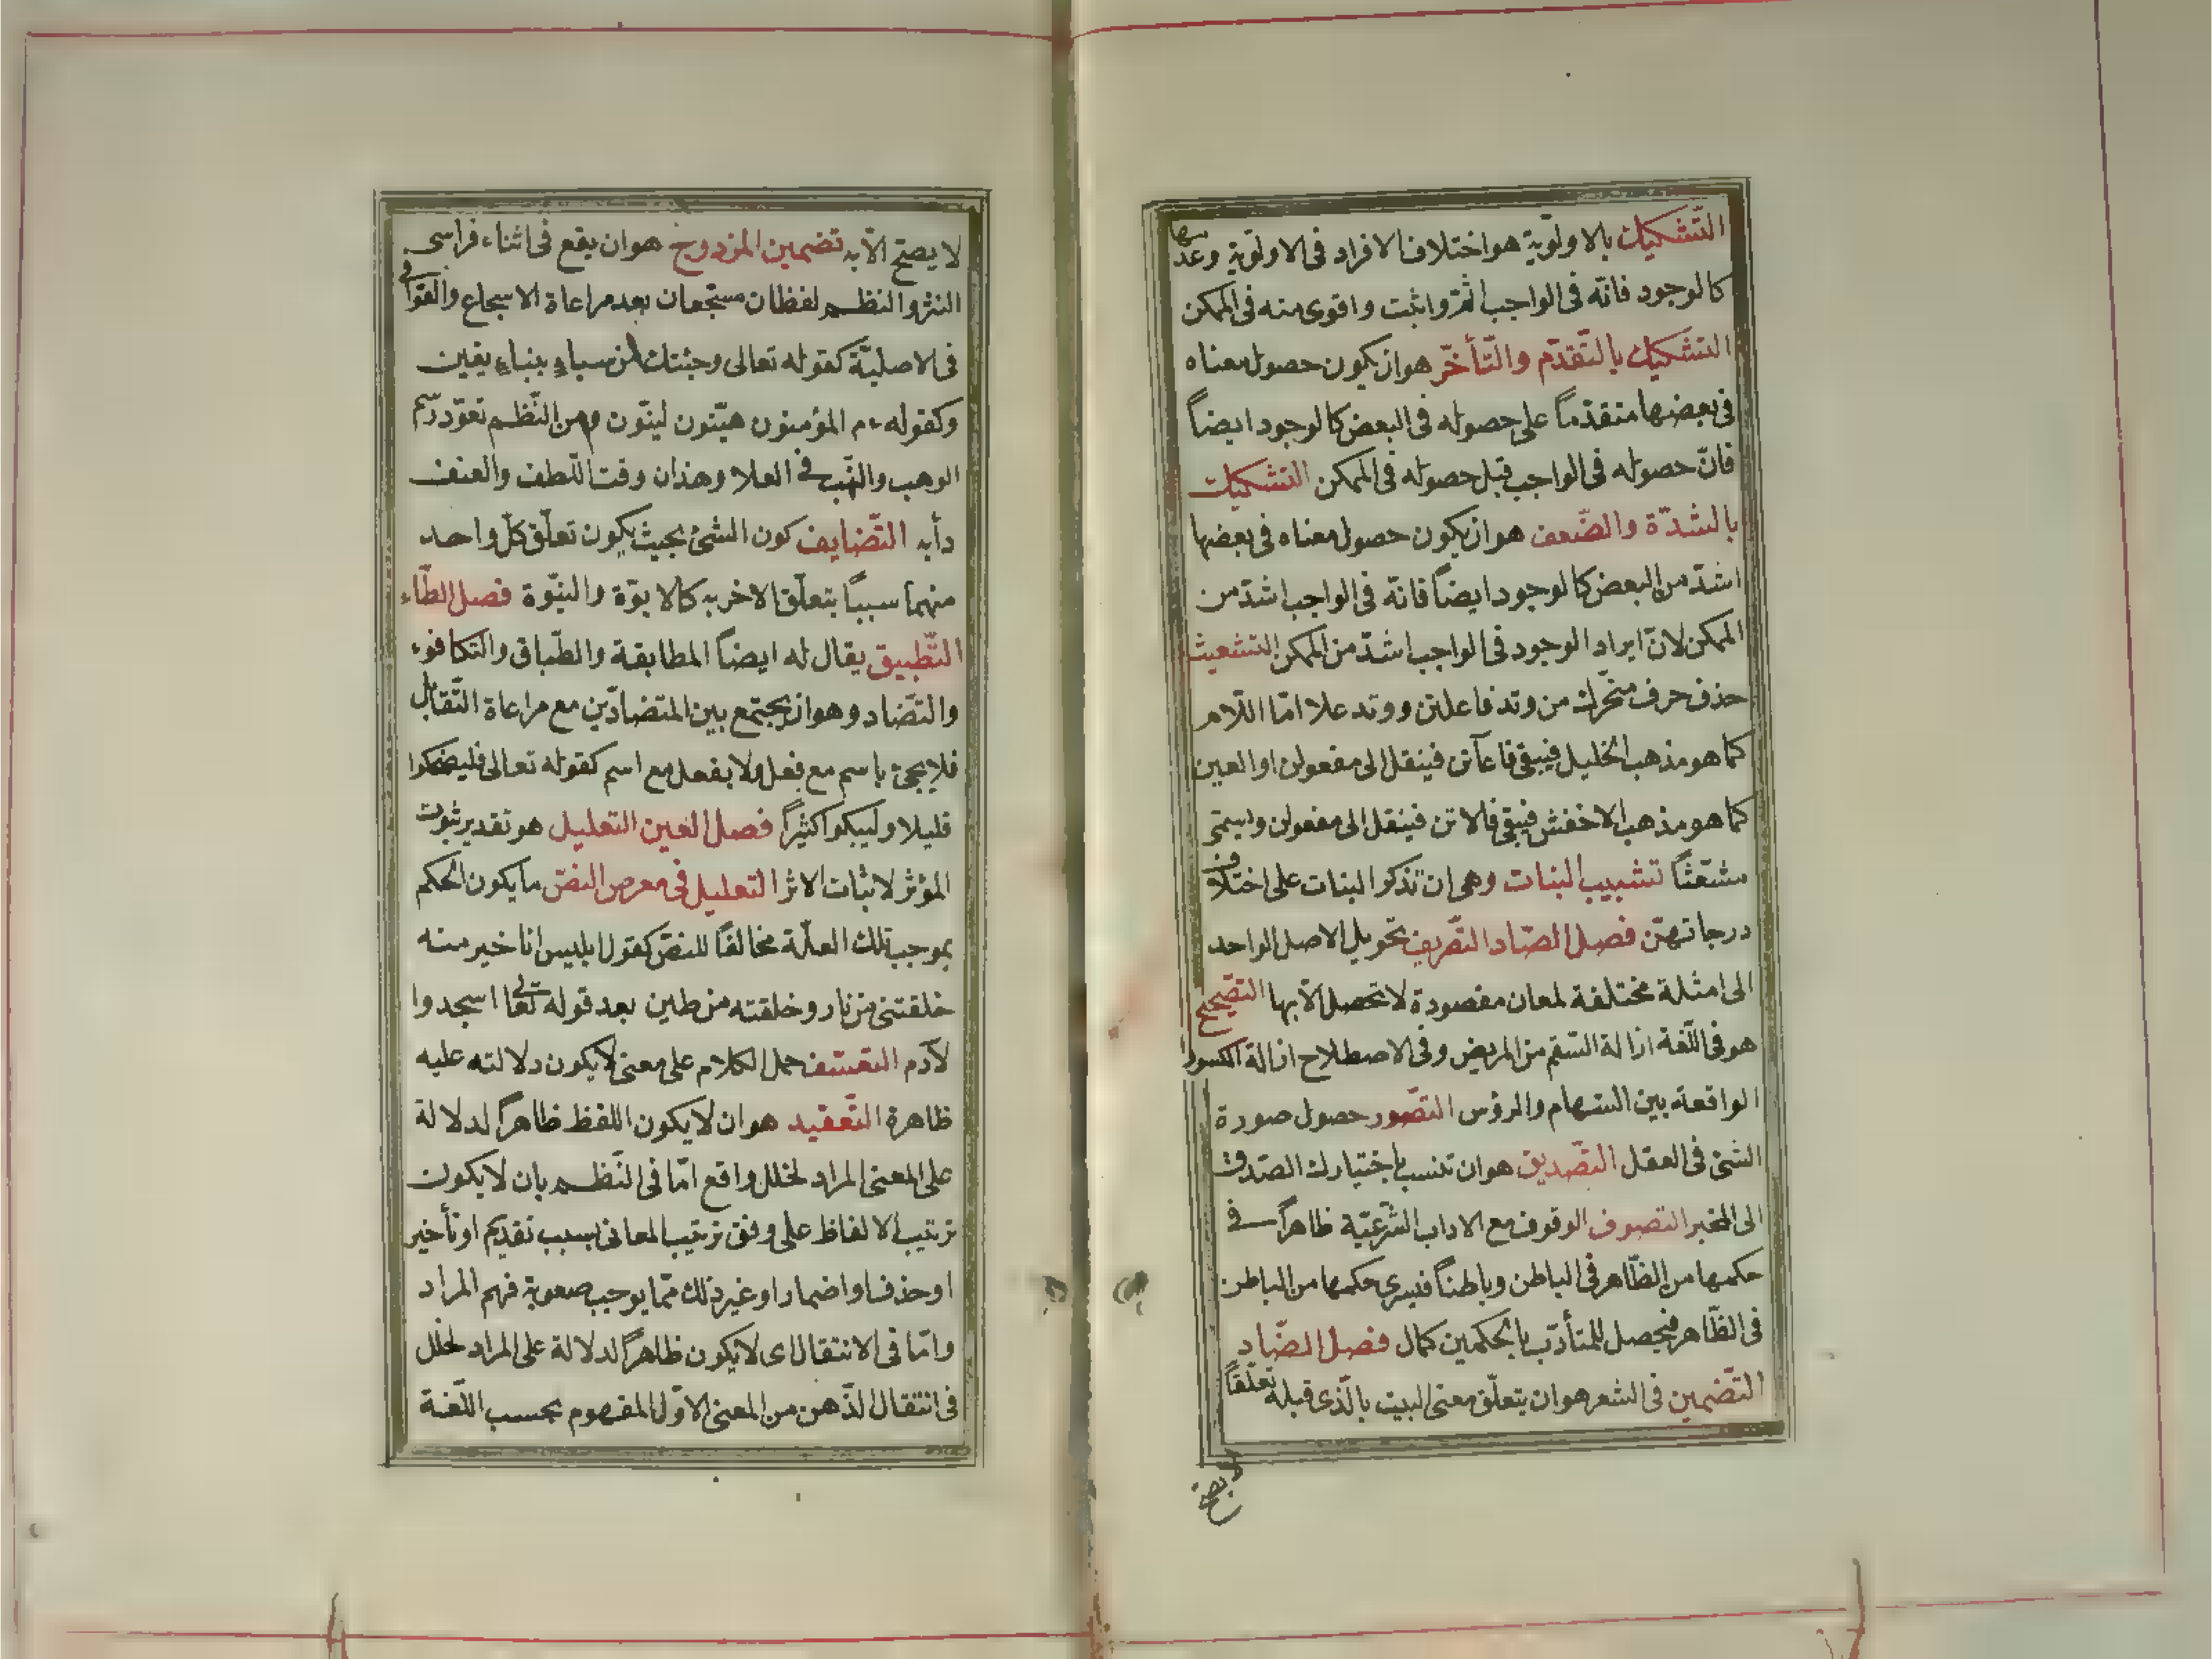 التّشكيك بالاولويّة هو اختلاف الافراد فى الاولويّة وعدمها
كالوجود فانّه فى الواجب اتمّ واثبت واقوى منه فى الممكن
التشكيك بالتّقدّم والتّأخّر هو ان يكون حصول معناه
فى بعضها متقدّماً على حصوله فى البعض كالوجود ايضاً
فانّ حصوله فى الواجب قبل حصوله فى الممكن التشكيك
بالشدّة والضّعف هو ان يكون حصول معناه فى بعضها
اشدّ من البعض كالوجود ايضاً فانّه فى الواجب اشدّ من
الممكن لانّ ايراد الوجود فى الواجب اشدّ من الممكن التشعيث
حذف حرف متحّرك من وتد فاعلاتن ووتد علا امّا اللّام
كما هو مذهب الخليل فيبقى فاعاتن فينقل الى مفعولن او العين
كما هو مذهب الاخفش فيبقى فالاتن فينقل الى مفعولن ويسمّى
مشعّثاً تشبيب البنات وهى ان تذكر البنات على اختلاف
درجاتهنّ فصل الصّاد التّصريف تحويل الاصل الواحد
الى امثلة مختلفة لمعان مقصودة لا تحصل الّا بها التّصحيح
هو فى اللّغة ازالة السّقم من المريض وفى الاصطلاح ازالة الكسور
الواقعة بين السّهام والرؤس التّصّور حصول صورة
الشئ فى العقل التّصديق هو ان تنسب باختيارك الصّدق
الى المخبر التصوف الوقوف مع الاداب الشّرعيّة ظاهراً فى
حكمها من الظّاهر فى الباطن وباطناً فيسرى حكمها من الباطن
فى الظّاهر فيحصل للمتأدّب بالحكمين كمال فصل الضّاد
التّضمين فى الشعر هو ان يتعلّق معنى البيت بالّذى قبله تعلّقاً
لا يصحّ
لا يصحّ الّا به تضمين المزدوج هو ان يقع فى اثناء قراسى
النثر والنظم لفظان مسجّعان بعد مراعاة الاسجاع والقوافى
فى الاصليّة كقوله تعالى وجئتك من سباءٍ بنباءٍ يقين
وكقوله ءم المؤمنون هيّنون ليّنون ومن النّظم تعوّد رسّم
الوهب والنّهب فى العلا وهذان وقت اللّطف والعنف
دأبه التّضايف كون الشئ بحيث يكون تعلّق كلّ واحد
منهما سبباً بتعلّق الاخر به كالابوّة والبنوّة فصل الطّاء
التّطبيق يقال له ايضاً المطابقة والطّباق والتكافوء
والتّضاد وهو ان يجتمع بين المتضادّين مع مراعاة التّقابل
فلا يجئ باسم مع فعل ولا بفعل مع اسم كقوله تعالى فليضحكوا
قليلا وليبكوا كثيراً فصل العين التعليل هو تقدير ثبوت
المؤثر لاثبات الاثر التعليل فى معرض النصّ ما يكون الحكم
بموجب تلك العلّة مخالفاً للنصّ كقول ابليس انا خير منه
خلقتنى من نار وخلقته من طين بعد قوله تعالى اسجدوا
لآدم التعسّف حمل الكلام على معنى لا يكون دلالته عليه
ظاهرة التّعقيد هو ان لا يكون اللفظ ظاهراً لدلالة
على المعنى المراد لخلل واقع امّا فى النّظم بان لا يكون
ترتيب الالفاظ على وفق ترتيب المعانى بسبب تقديم او تأخير
او حذف او اضمار او غير ذلك ممّا يوجب صعوبة فهم المراد
وامّا فى الانتقال اى لا يكون ظاهراً لدلالة على المراد لخلل
فى انتقال الذّهن من المعنى الاوّل المفهوم بحسب اللّغة